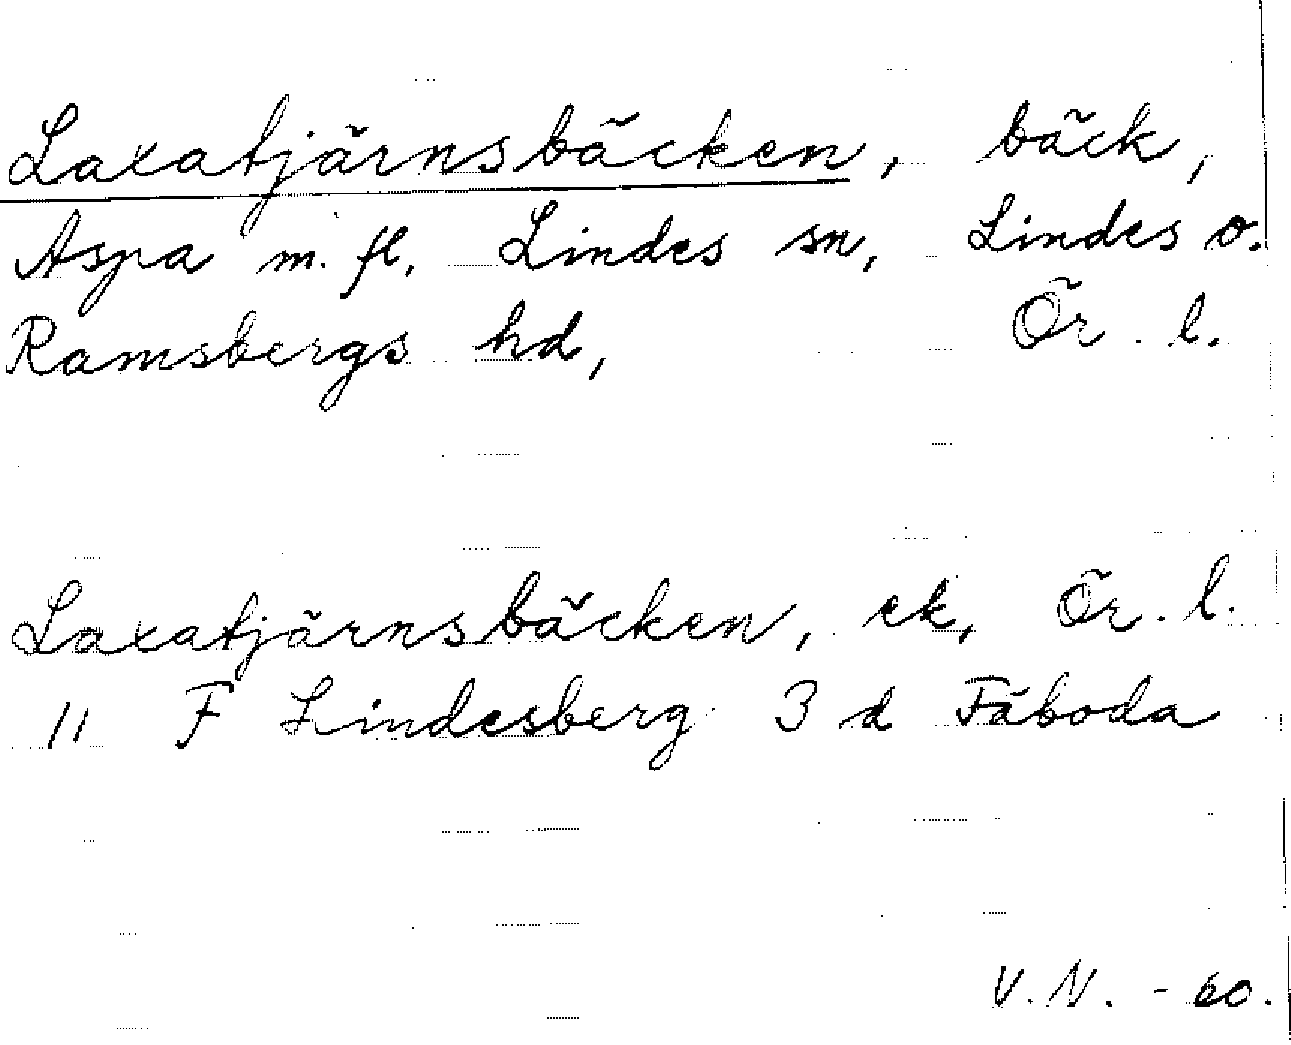 Laxatjärnsbäcken, bäck,
Aspa m. fl. Lindes sn, Lindes o.
Ramsbergs hd, Ör. l.
Laxatjärnsbäcken, ek, Ör. l.
11 F Lindesberg 3 d Fäboda
V.N. - 60.